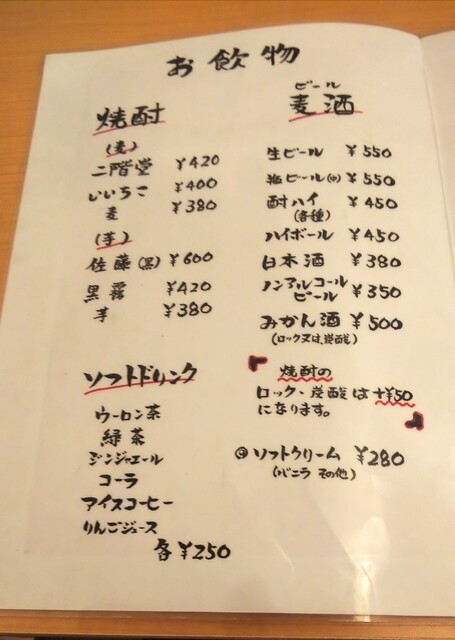 お飲物
焼酎
(麦)
二階堂 ¥420
いいちこ ¥400
麦 ¥380
(芋)
佐藤(黒) ¥600
黒霧 ¥420
芋 ¥380
ソフトドリンク
ウーロン茶
緑茶
ジンジャエール
コーラ
アイスコーヒー
りんごジュース
各¥250
ビール
麦酒
生ビール ¥550
瓶ビール(中) ¥550
酎ハイ ¥450
(各種)
ハイボール ¥450
日本酒 ¥380
ノンアルコール
ビール ¥350
みかん酒 ¥500
(ロック又は、炭酸)
「焼酎の
ロック・炭酸は+¥50
になります。」
ソフトクリーム ¥280
(バニラ その他)